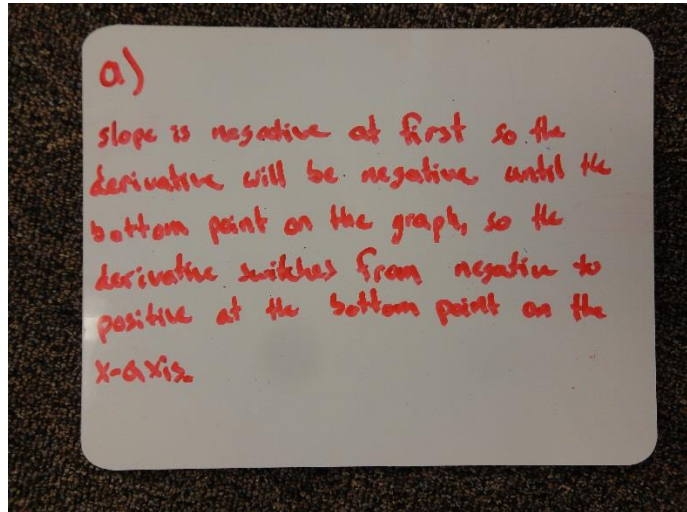 a)
slope is negative at first so the
derivative will be negative until the
bottom point on the graph, so the
derivative switches from negative to
positive at the bottom point on the
x-axis.